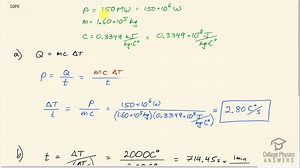 10PE
P = 150 MW = 150×10⁶ W
m = 1.60×10⁵ kg
C = 0.3349 kJ/kg·C° = 0.3349×10³ J/kg·C°
a) Q = mC ΔT
P = Q/t = mC ΔT/t
ΔT/t = P/mC = 150×10⁶ W/(1.60×10⁵ kg)(0.3349×10³ J/kg·C°) = 2.80 C°/s
b) t = ΔT/ = 2000 C°/ = 714.45 s × 1 min
College Physics
ANSWERS